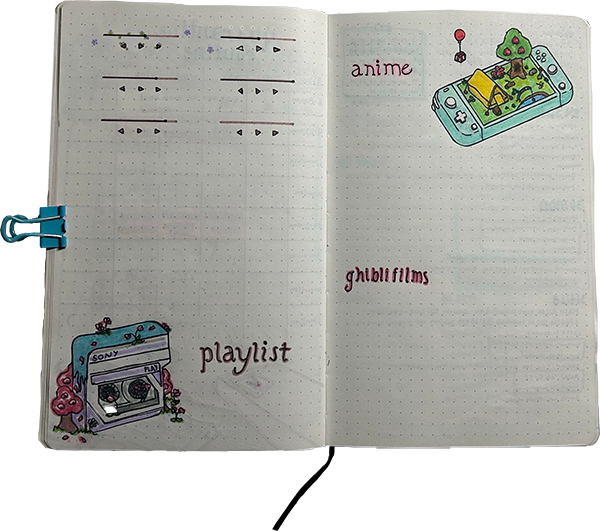 SONY
PLAY
playlist
anime
ghibli films